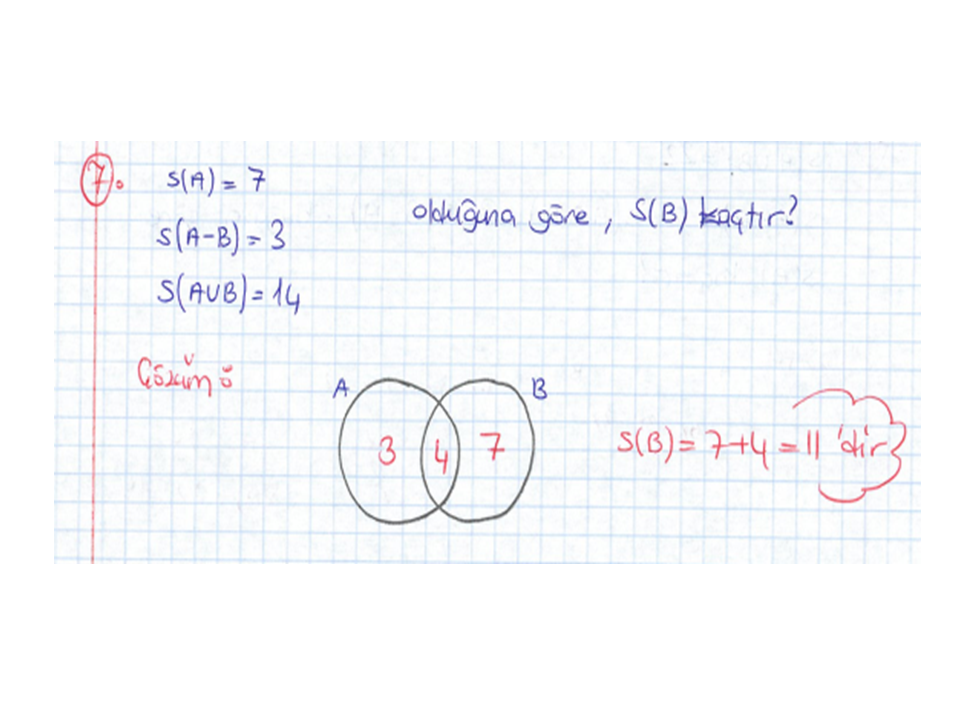 7. s(A) = 7
s(A-B) = 3
s(A∪B) = 14
olduğuna göre, s(B) kaçtır?
Çözüm:
A B
3 4 7
s(B) = 7+4 = 11 'dir